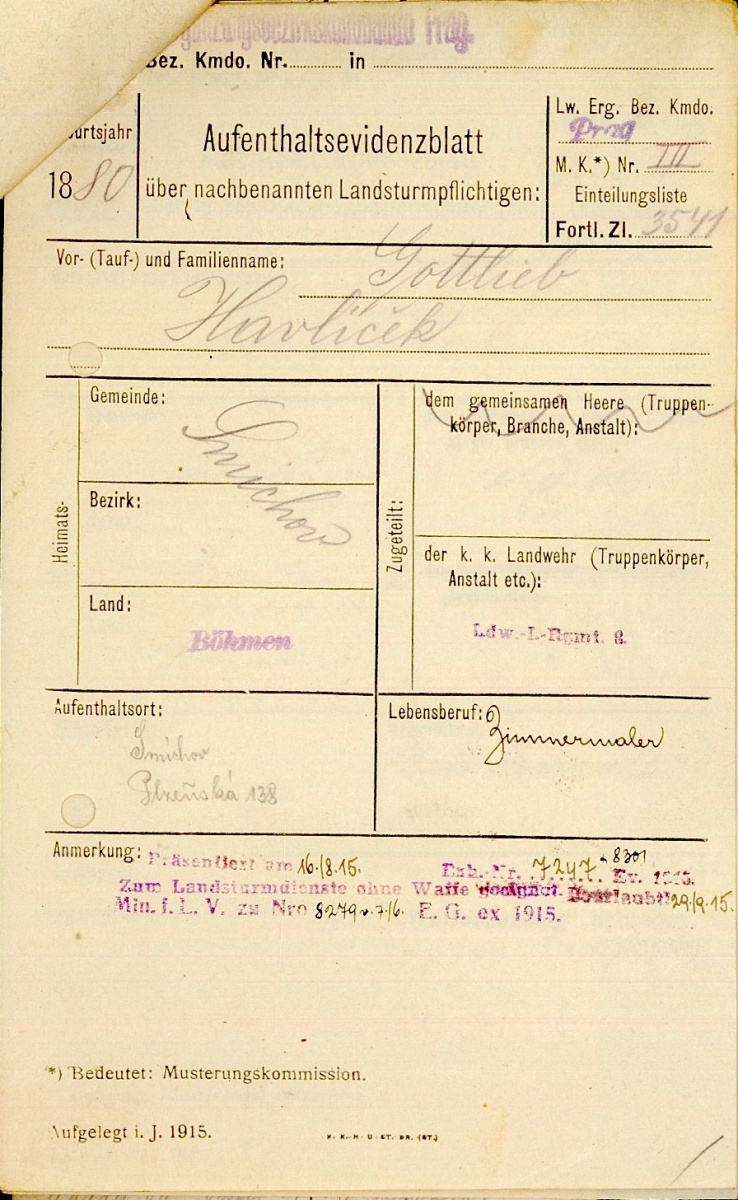 gänzungsbezirkskommando Prag.
Bez. Kmdo. Nr. in
burtsjahr
1880
Aufenthaltsevidenzblatt
über nachbenannten Landsturmpflichtigen:
Lw. Erg. Bez. Kmdo.
Prag
M. K.*) Nr. III
Einteilungsliste
Fortl. Zl. 3541
Vor- (Tauf-) und Familienname: Gottlieb
Havlíček
Heimats-
Gemeinde:
Smichov
Bezirk:
Land:
Böhmen
Zugeteilt:
dem gemeinsamen Heere (Truppen-
körper, Branche, Anstalt):
der k. k. Landwehr (Truppenkörper,
Anstalt etc.):
Ldw.-I-Rgmt. 8.
Aufenthaltsort:
Smíchov
Plzeňská 138
Lebensberuf:
Zimmermaler
Anmerkung: Präsentiert am 16./8.15. Exh.-Nr. 7247 8301 Ev. 1915.
Zum Landsturmdienste ohne Waffe geeignet. Beurlaubt 29/9.15.
Min. f. L. V. zu Nro 8279 v. 7./6. E. G. ex 1915.
*) Bedeutet: Musterungskommission.
Aufgelegt i. J. 1915.
K. K. H- U. ST. DR. (ST.)